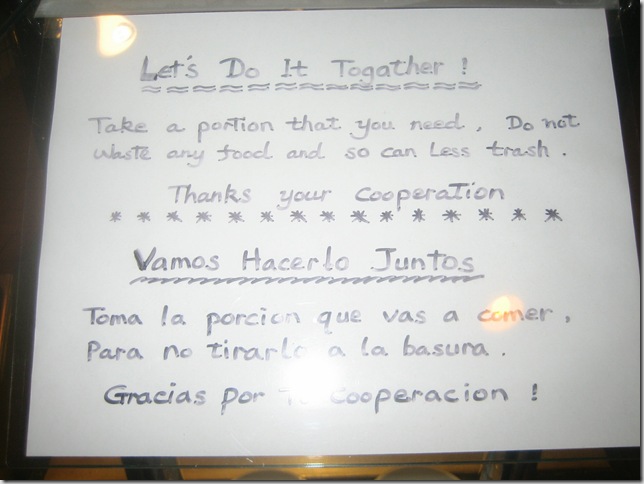 Let's Do It Togather !
Take a portion that you need. Do not
waste any food and so can Less trash.
Thanks your cooperation
* * * * * * * * * * * * * * *
Vamos Hacerlo Juntos
Toma la porcion que vas a comer,
Para no tirarlo a la basura.
Gracias por tu cooperacion !